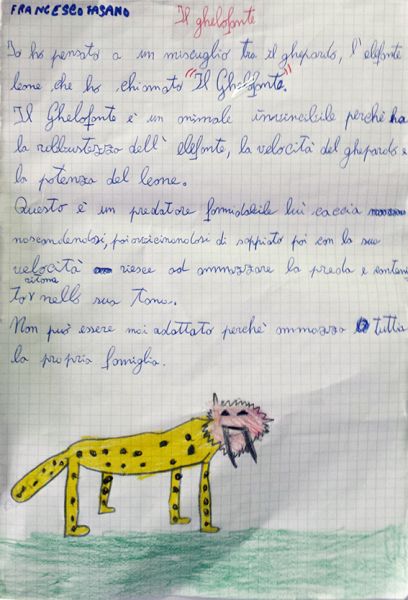 FRANCESCO FASANO
Il ghelofonte
Io ho pensato a un miscuglio tra il ghepardo, l'elefonte
leone che ho chiamato "Il Ghelofonte".
Il Ghelofonte è un nimale invincibile perchè ha
la robbustezza dell' elefonte, la velocità del ghepardo e
la potenza del leone.
Questo è un predatore formidabile lui caccia
noscondendosi, poi avvicinondosi di soppiato poi con la sua
velocità riesce ad ammazzare la preda e
ritorna
nella sua tana.
Non può essere mai adattato perchè ammazza tutta
la propria famiglia.